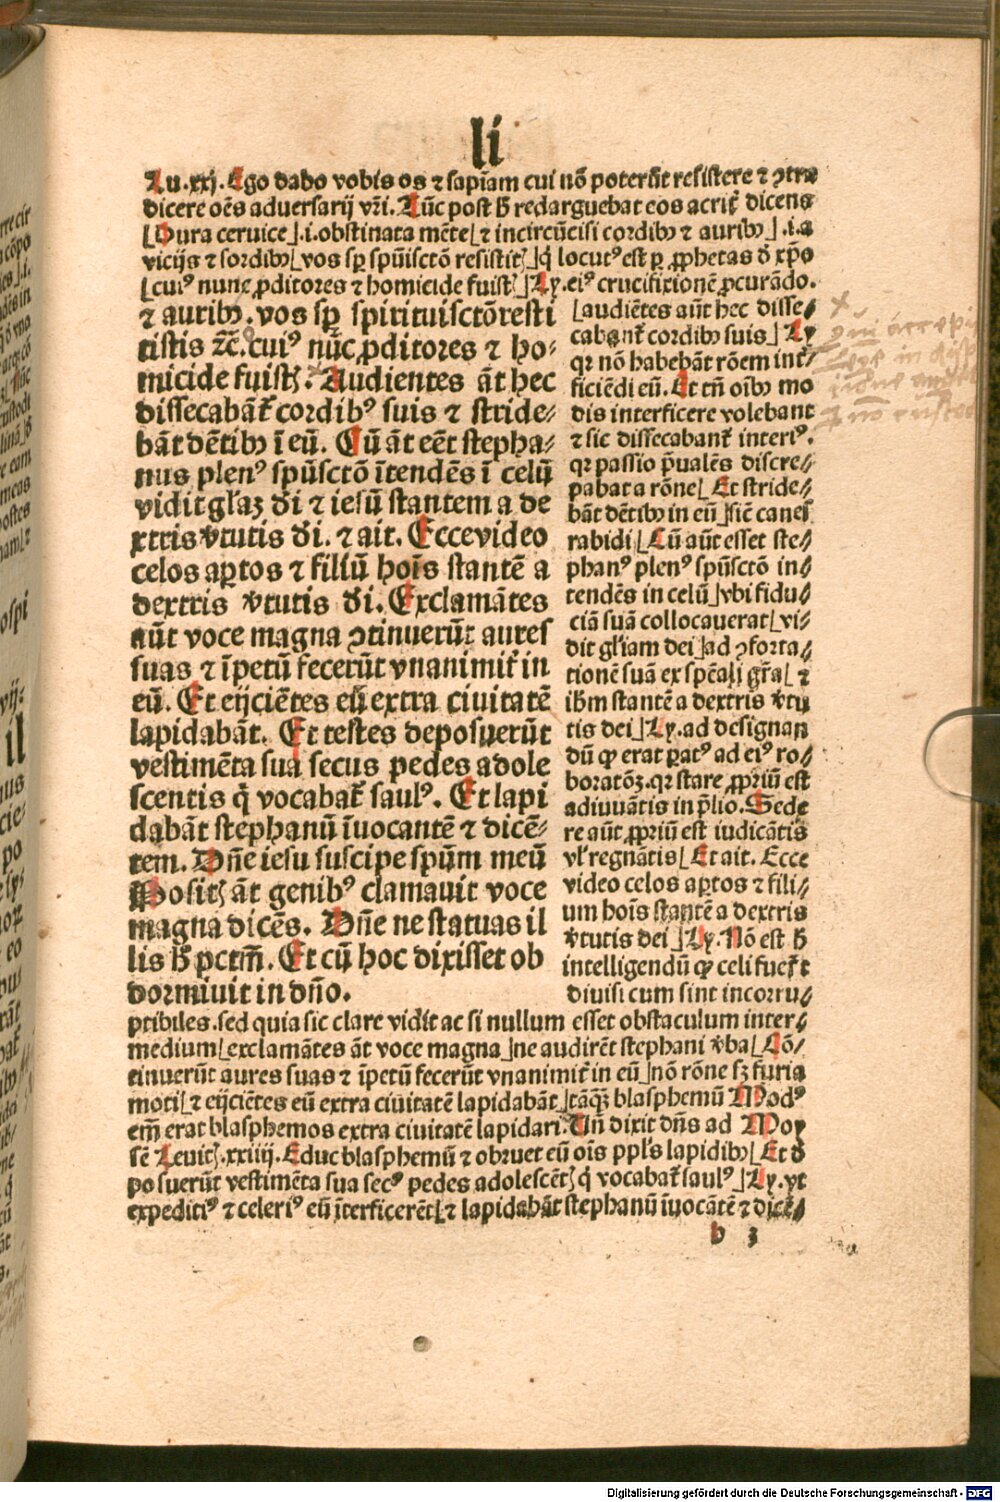 li
Lu.xxj. Ego dabo vobis os ⁊ sapiam cui nō poterūt resistere ⁊ ꝯtra
dicere oēs adversarij vr̄i. Tūc post h̄ redarguebat eos acrit̄ dicens
[Dura cervice].i.obstinata mēte[⁊ incircūcisi cordibꝰ ⁊ auribꝰ].i.a
vicijs ⁊ sordibꝰ[vos sp̄ spūisctō resistitꝭ]q̄ locutꝰ est ꝑ ꝓphetas d̄ xp̄o
[cuiꝰ nunc ꝓditores ⁊ homicide fuistꝭ]Ly.eiꝰ crucifixionē ꝓcurādo.
⁊ auribꝰ.vos sp̄ spirituisctō resti
tistis ⁊c̄.cuiꝰ nūc ꝓditores ⁊ ho⸗
micide fuistꝭ. Audientes āt hec
dissecabāt̄ cordibꝰ suis ⁊ stride⸗
bāt dētibꝰ ī eū. Cū āt eēt stepha⸗
nus plenꝰ spūsctō ītendēs ī celū
vidit gl̄aꝫ d̄i ⁊ iesū stantem a de
xtris v̄tutis d̄i. ⁊ ait. Ecce video
celos aꝑtos ⁊ filiū hoīs stantē a
dextris v̄tutis d̄i. Exclamātes
aūt voce magna ꝯtinuerūt aures
suas ⁊ īpetū fecerūt vnanimit̄ in
eū. Et eijciētes eū extra civitatē
lapidabāt. Et testes deposuerūt
vestimēta sua secus pedes adole
scentis q̄ vocabat̄ saulꝰ. Et lapi
dabāt stephanū īuocantē ⁊ dicē⸗
tem. Dn̄e iesu suscipe spūm meū
Positꝭ āt genibꝰ clamavit voce
magna dicēs. Dn̄e ne statuas il
lis h̄ pctm̄. Et cū hoc dixisset ob
dormivit in dn̄o.
[audiētes aūt hec disse⸗
cabant̄ cordibꝰ suis] Ly
qꝛ nō habebāt rōem int̄⸗
ficiēdi eū. Et tn̄ oībꝰ mo
dis interficere volebant
⁊ sic dissecabant̄ interiꝰ.
qꝛ passio p̄valēs discre⸗
pabat a rōne[Et stride⸗
bāt dētibꝰ in eū]sic̄ canes
rabidi[Cū aūt esset ste⸗
phanꝰ plenꝰ spūsctō in⸗
tendēs in celū]vbi fidu⸗
ciā suā collocauerat[vi⸗
dit gl̄iam dei]ad ꝯforta⸗
tionē suā ex spēali gr̄a[⁊
ih̄m stantē a dextris v̄tu
tis dei]Ly.ad designan
dū ꝙ erat ꝑatꝰ ad eiꝰ ro⸗
boratōꝫ.qꝛ stare ꝓpriū est
adiuvātis in p̄lio. Sede
re aūt ꝓpriū est iudicātis
vl̄ regnātis[Et ait. Ecce
video celos aꝑtos ⁊ fili⸗
um hoīs stantē a dextris
v̄tutis dei]Ly. Nō est h̄
intelligendū ꝙ celi fuer̄t
divisi cum sint incorru⸗
ptibiles.sed quia sic clare vidit ac si nullum esset obstaculum inter⸗
medium[exclamātes āt voce magna]ne audirēt stephani v̄ba[Cō⸗
tinuerūt aures suas ⁊ īpetū fecerūt vnanimit̄ in eū]nō rōne sꝫ furia
moti[⁊ eijciētes eū extra ciuitatē lapidabāt]tāqꝫ blasphemū Modꝰ
em̄ erat blasphemos extra ciuitatē lapidari. Un̄ dixit dn̄s ad Moy
sē Levitꝭ.xxiiij. Educ blasphemū ⁊ obruet eū oīs ppl̄s lapidibꝰ[Et d̄
posuerūt vestimēta sua secꝰ pedes adolescētꝭ q̄ vocabat̄ saulꝰ]Ly.vt
expeditiꝰ ⁊ celeriꝰ eū īterficerēt[⁊ lapidabāt stephanū īuocātē ⁊ dicē⸗
b 3
Digitalisierung gefördert durch die Deutsche Forschungsgemeinschaft - DFG